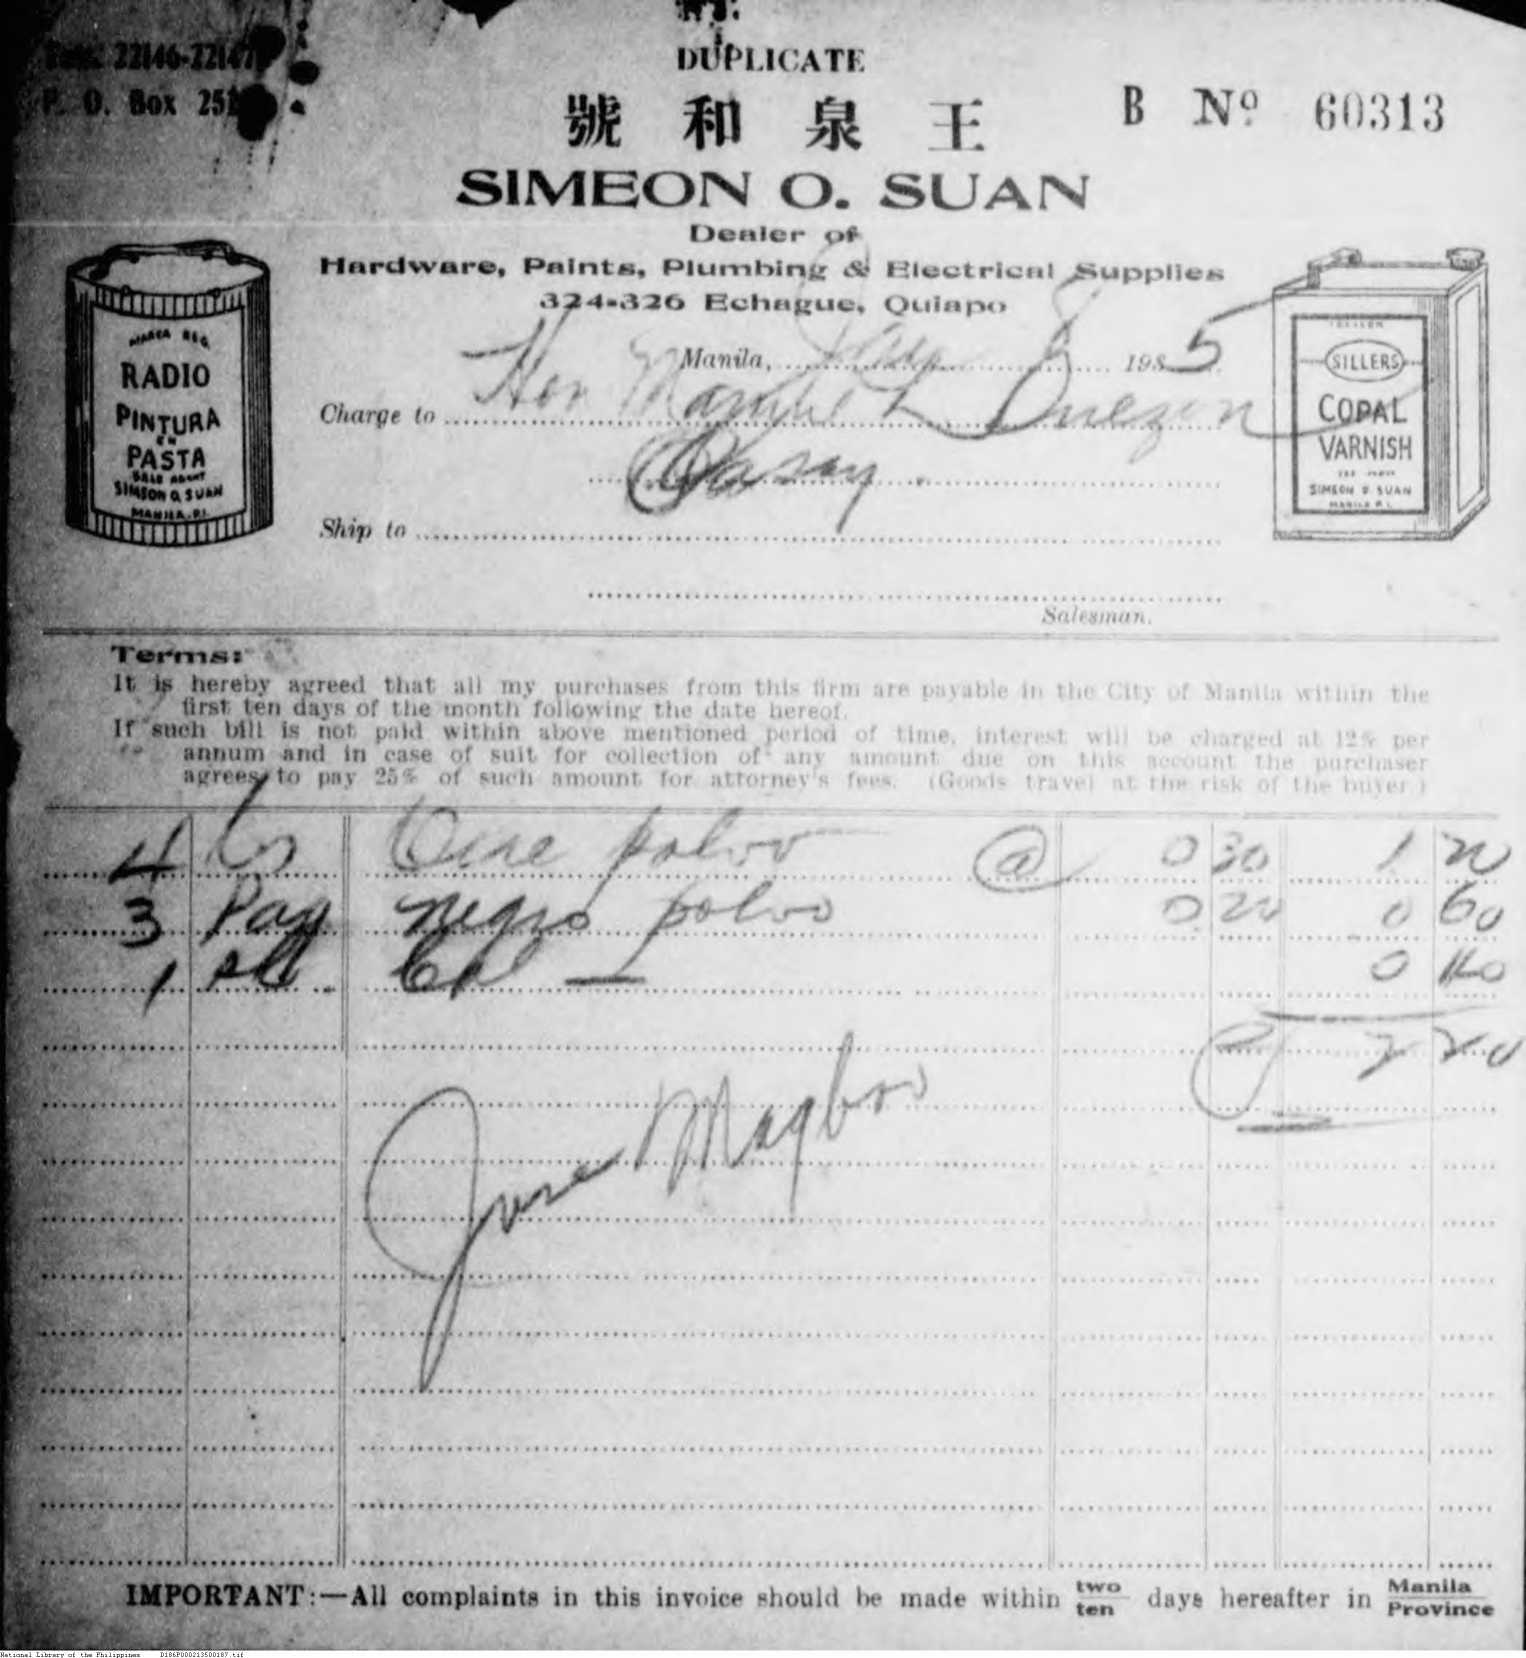 22146-22147
P. O. Box 251
DUPLICATE
號 和 泉 王
B Nº 60313
SIMEON O. SUAN
Dealer of
Hardware, Paints, Plumbing & Electrical Supplies
324-326 Echague, Quiapo
Manila, Jan 8 1935
Charge to Hon Manuel L Quezon
Pasay
Ship to
Salesman.
MARCA REG.
RADIO
PINTURA
EN
PASTA
SALE AGENT
SIMEON O. SUAN
MANILA. P.I.
SILLERS
COPAL
VARNISH
SIMEON O SUAN
MANILA P.I.
Terms:
It is hereby agreed that all my purchases from this firm are payable in the City of Manila within the
first ten days of the month following the date hereof.
If such bill is not paid within above mentioned period of time, interest will be charged at 12% per
annum and in case of suit for collection of any amount due on this account the purchaser
agrees to pay 25% of such amount for attorney's fees. (Goods travel at the risk of the buyer)
4 polvo @ 0 30 1 20
3 Paq negro polvo 0 20 0 60
1 Cal — 0 40
2 20
IMPORTANT:—All complaints in this invoice should be made within two ten days hereafter in Manila Province
National Library of the Philippines D186P000213500187.tif